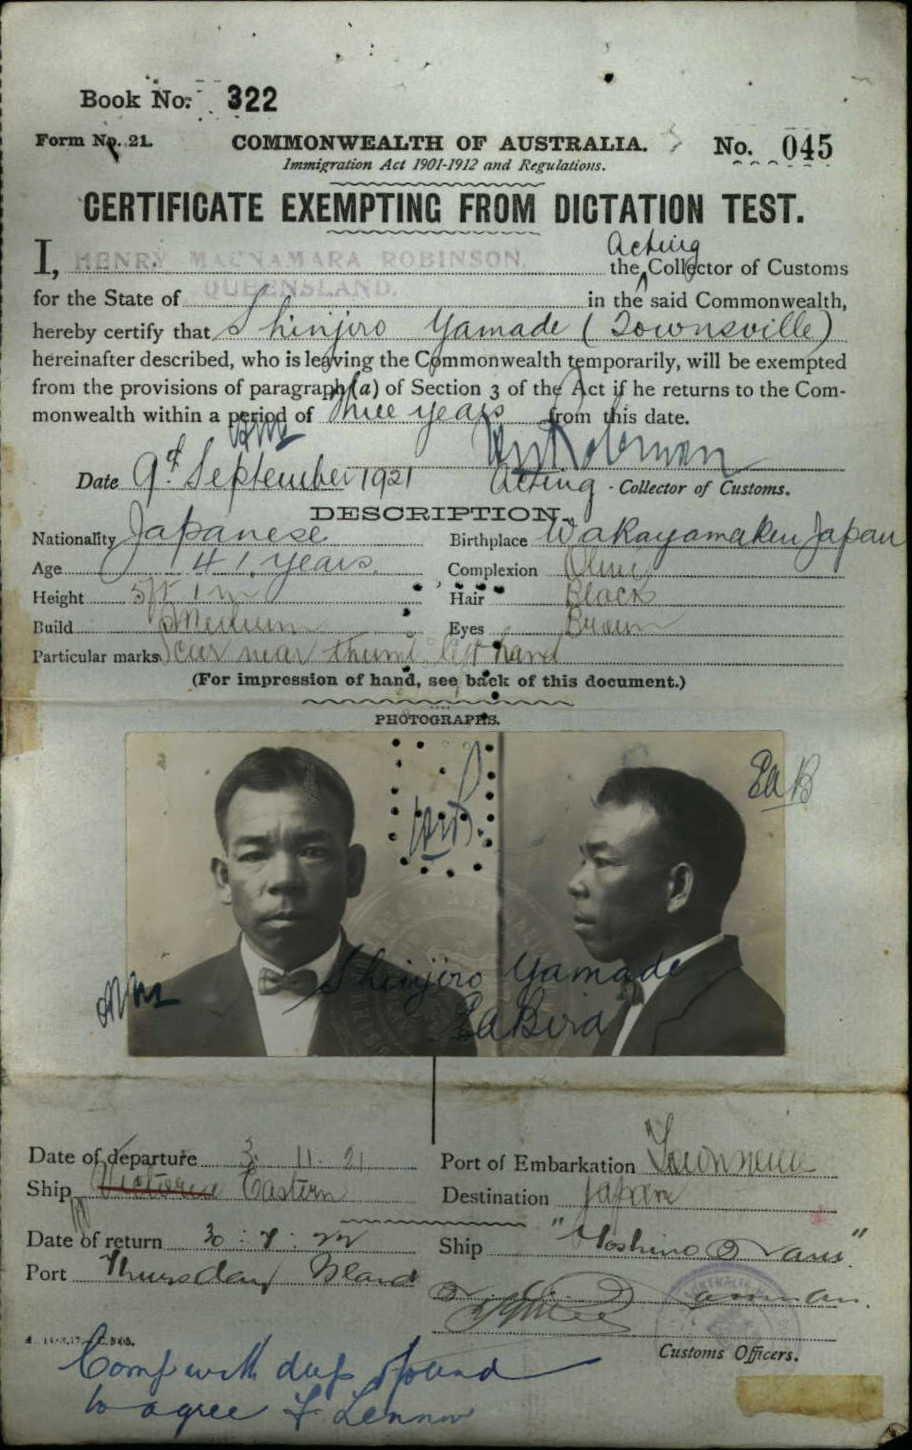 Book No. 322
Form No. 21.
COMMONWEALTH OF AUSTRALIA.
No. 045
Immigration Act 1901-1912 and Regulations.
CERTIFICATE EXEMPTING FROM DICTATION TEST.
Acting
I, HENRY MACNAMARA ROBINSON, the Collector of Customs
QUEENSLAND.
for the State of in the said Commonwealth,
hereby certify that Shinjiro Yamade (Townsville)
hereinafter described, who is leaving the Commonwealth temporarily, will be exempted
from the provisions of paragraph (a) of Section 3 of the Act if he returns to the Com-
monwealth within a period of three years from this date.
Date 9th September 1921 Acting Collector of Customs.
DESCRIPTION.
Nationality Japanese Birthplace Wakayamaken Japan
Age 41 years. Complexion Olive
Height 5ft 1 in Hair Black
Build Medium Eyes Brown
Particular marks Scar near thumb left hand
(For impression of hand, see back of this document.)
PHOTOGRAPHS.
Shinjiro Yamade
Date of departure 3. 11. 21 Port of Embarkation Townsville
Ship Victoria Eastern Destination Japan
Date of return Ship "Yoshino Maru"
Port Thursday Island
Customs Officers.
Comp with dup & found
to agree F. Lennon